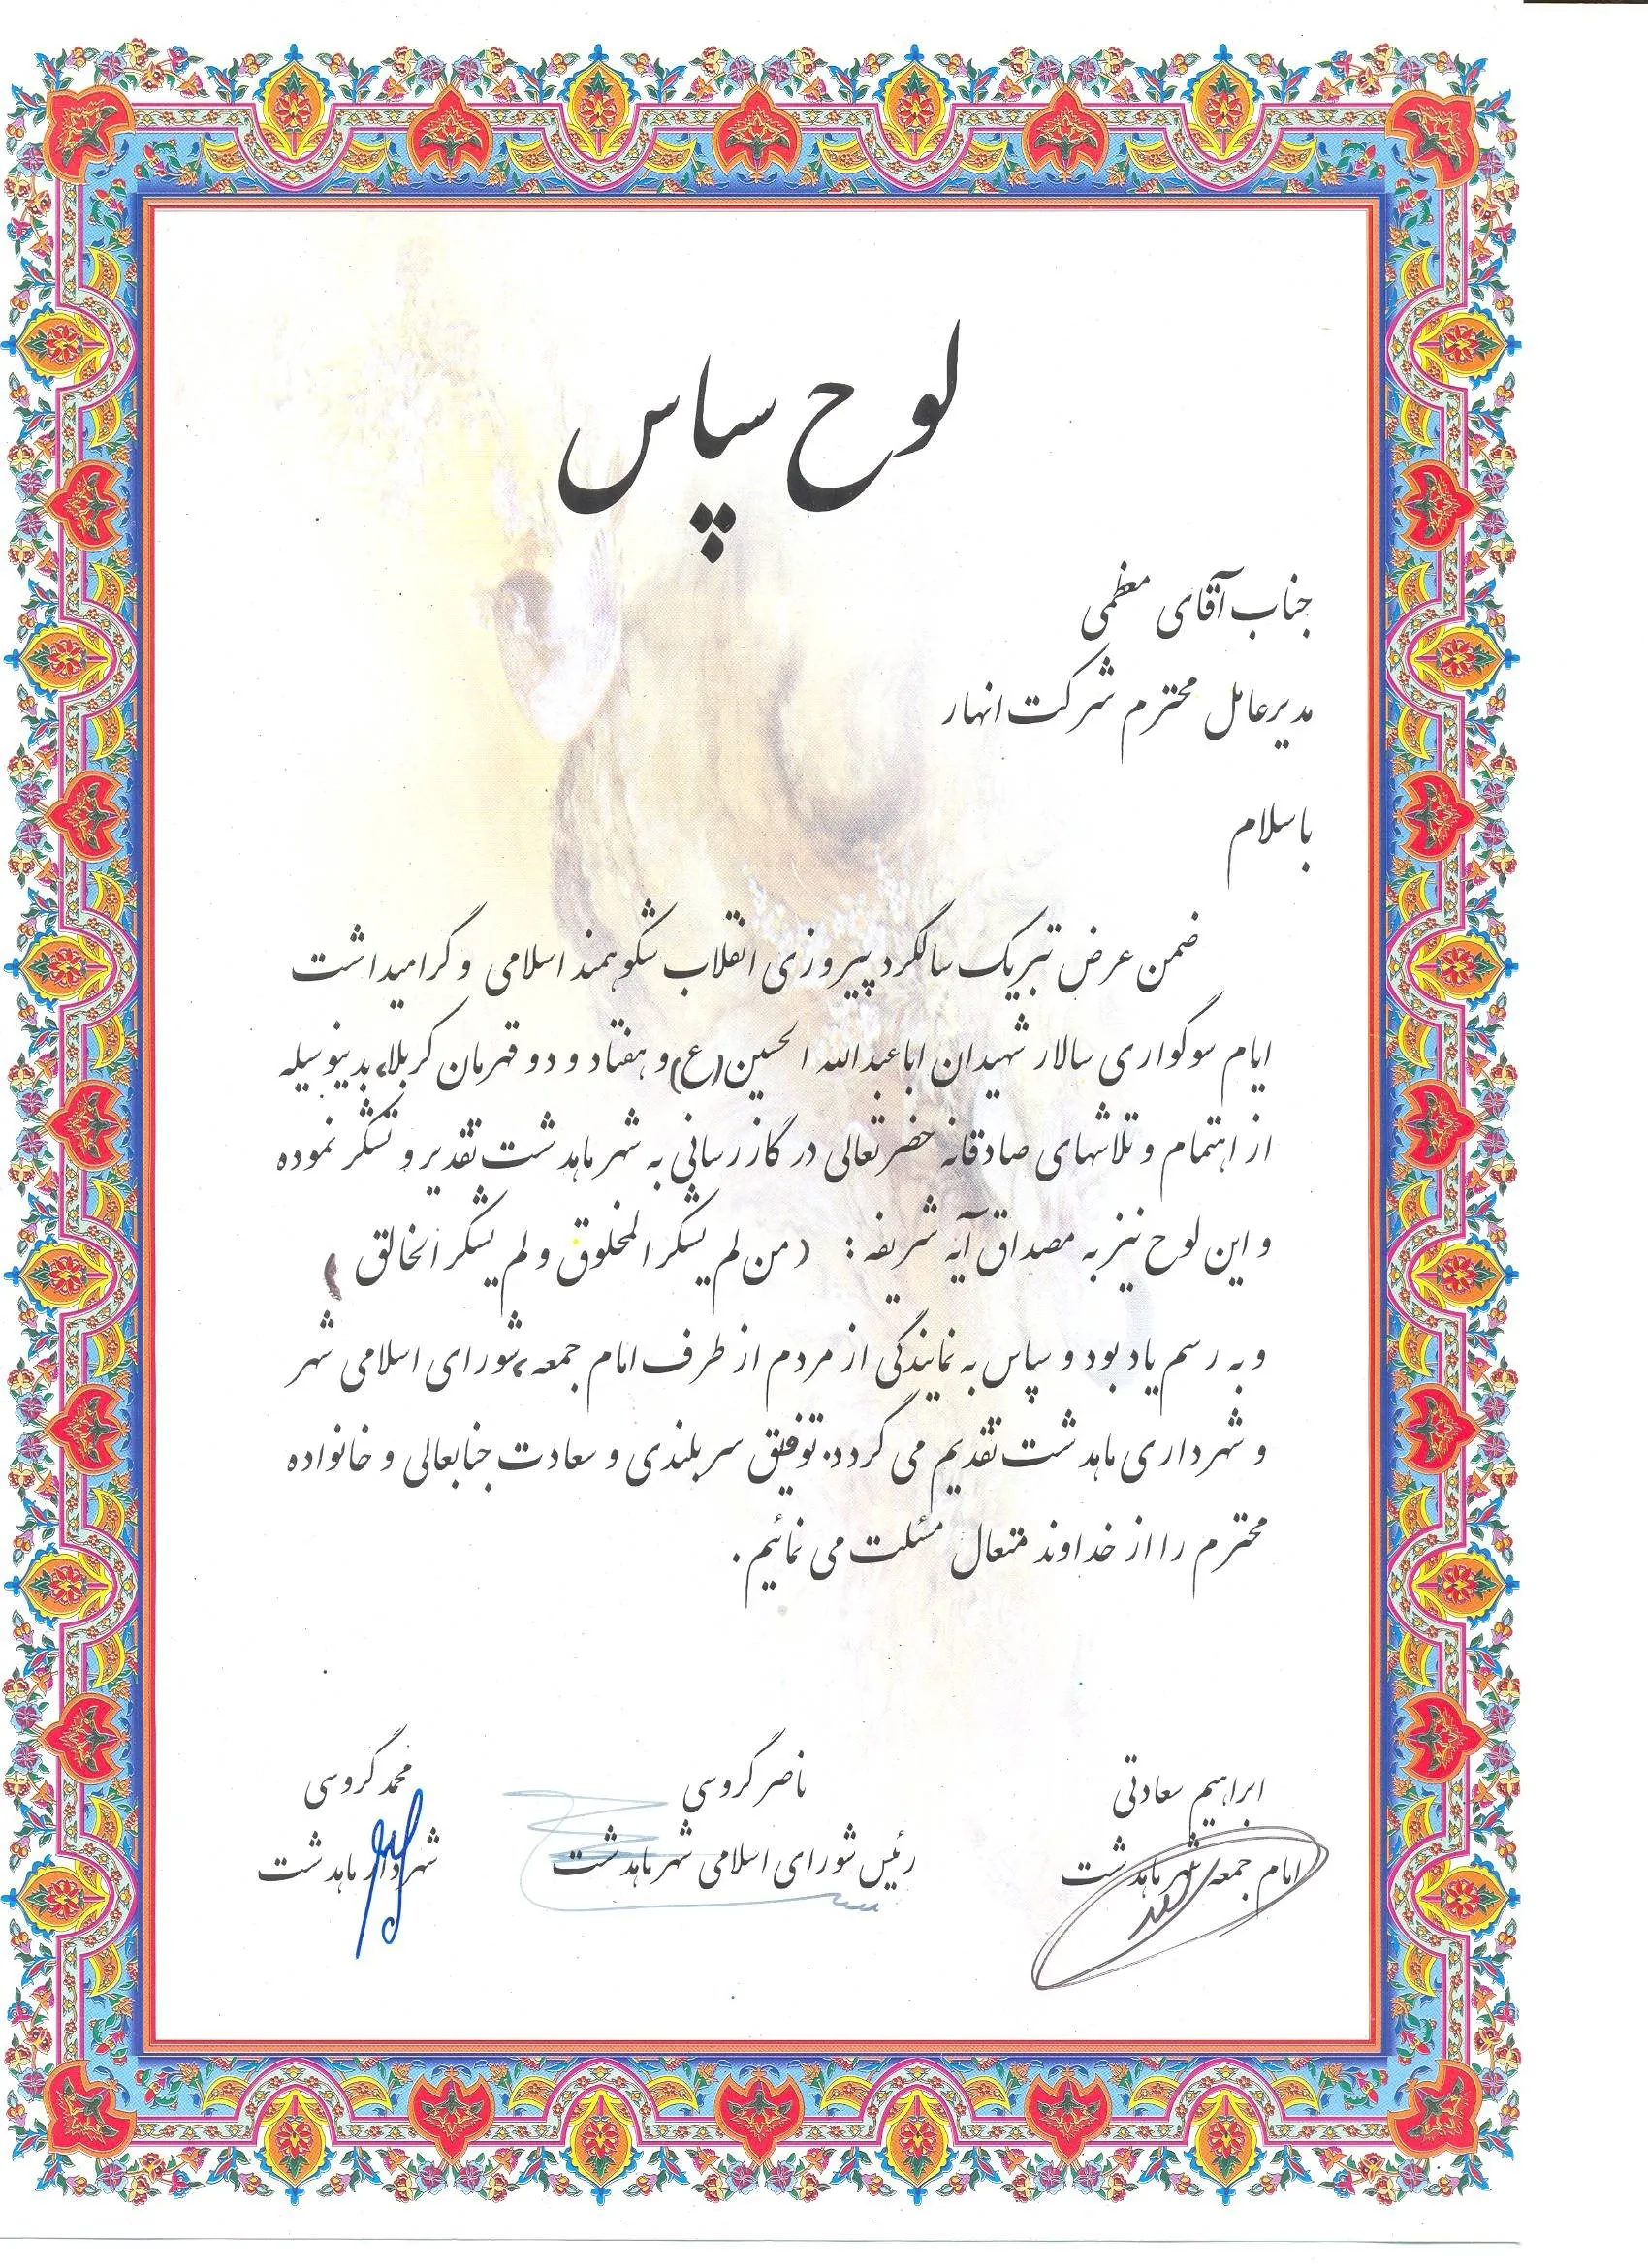 لوح سپاس
جناب آقای معظمی
مدیرعامل محترم شرکت انهار
باسلام
ضمن عرض تبریک سالگرد پیروزی انقلاب شکوهمند اسلامی و گرامیداشت
ایام سوگواری سالار شهیدان اباعبدالله الحسین(ع)و هفتاد و دو قهرمان کربلا، بدینوسیله
از اهتمام و تلاشهای صادقانه حضرتعالی در گازرسانی به شهر ماهدشت تقدیر و تشکر نموده
و این لوح نیز به مصداق آیه شریفه : (من لم یشکر المخلوق و لم یشکر الخالق )
و به رسم یاد بود و سپاس به نمایندگی از مردم از طرف امام جمعه ،شورای اسلامی شهر
و شهرداری ماهدشت تقدیم می گردد. توفیق سربلندی و سعادت جنابعالی و خانواده
محترم را از خداوند متعال مسئلت می نمائیم .
ابراهیم سعادتی ناصر گروسی محمد گروسی
امام جمعه شهر ماهدشت رئیس شورای اسلامی شهر ماهدشت شهردار ماهدشت